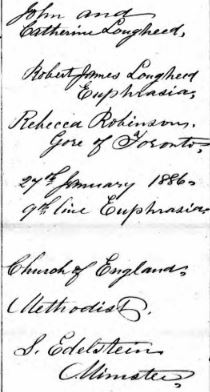 John and
Catherine Lougheed,
Robert James Lougheed
Euphrasia,
Rebecca Robinson,
Gore of Toronto,
27th January 1886.
9th line Euphrasia,
Church of England,
Methodist.
S. Edelstein
Minister